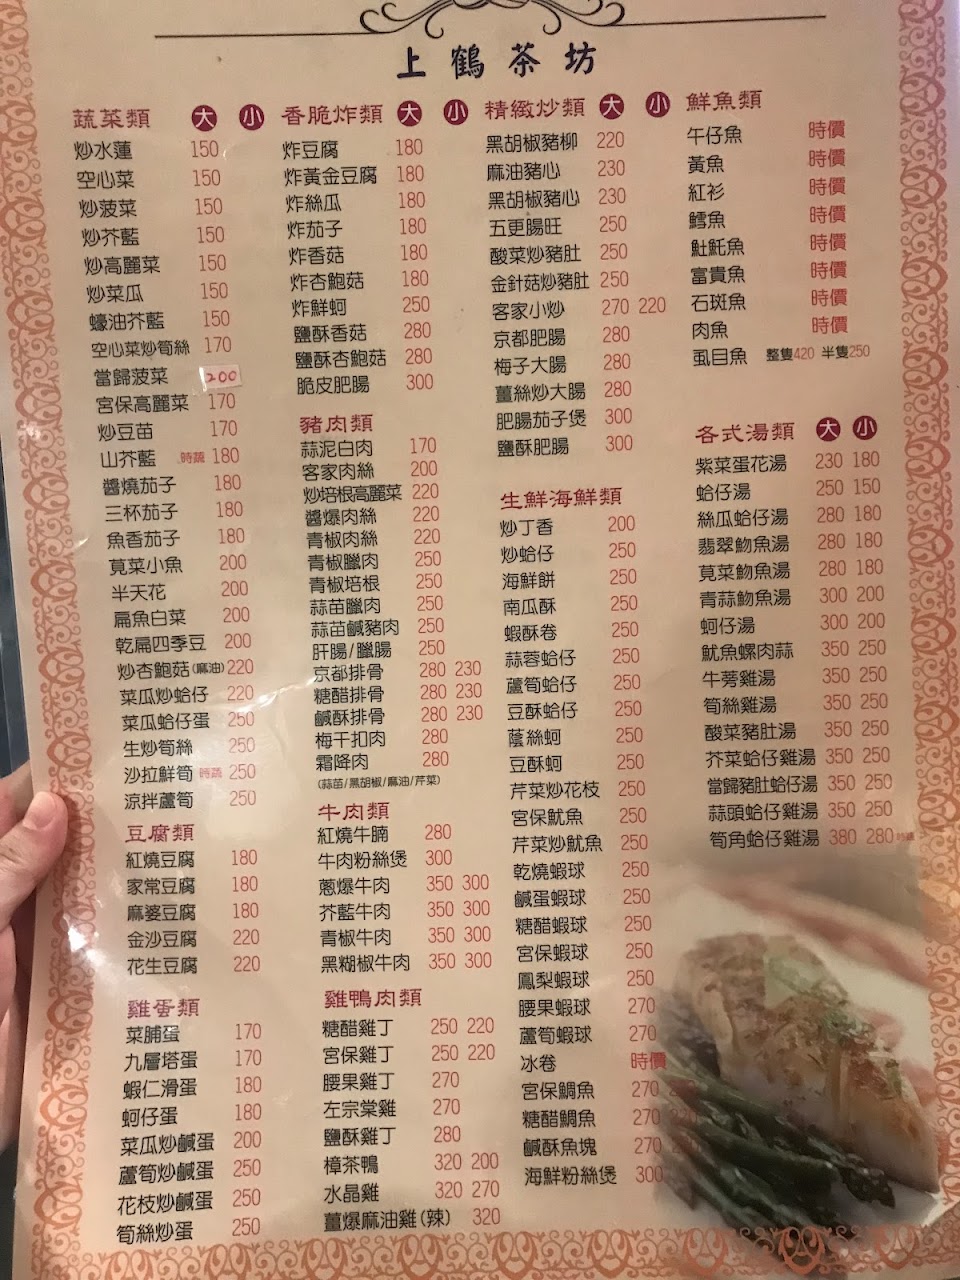 上鶴茶坊
蔬菜類 大 小
炒水蓮 150
空心菜 150
炒菠菜 150
炒芥藍 150
炒高麗菜 150
炒菜瓜 150
蠔油芥藍 150
空心菜炒筍絲 170
當歸菠菜 200
宮保高麗菜 170
炒豆苗 170
山芥藍 時蔬 180
醬燒茄子 180
三杯茄子 180
魚香茄子 180
莧菜小魚 200
半天花 200
扁魚白菜 200
乾扁四季豆 200
炒杏鮑菇(麻油) 220
菜瓜炒蛤仔 220
菜瓜蛤仔蛋 250
生炒筍絲 250
沙拉鮮筍 時蔬 250
涼拌蘆筍 250
豆腐類
紅燒豆腐 180
家常豆腐 180
麻婆豆腐 180
金沙豆腐 220
花生豆腐 220
雞蛋類
菜脯蛋 170
九層塔蛋 170
蝦仁滑蛋 180
蚵仔蛋 180
菜瓜炒鹹蛋 200
蘆筍炒鹹蛋 250
花枝炒鹹蛋 250
筍絲炒蛋 250
香脆炸類 大 小
炸豆腐 180
炸黃金豆腐 180
炸絲瓜 180
炸茄子 180
炸香菇 180
炸杏鮑菇 180
炸鮮蚵 250
鹽酥香菇 280
鹽酥杏鮑菇 280
脆皮肥腸 300
豬肉類
蒜泥白肉 170
客家肉絲 200
炒培根高麗菜 220
醬爆肉絲 220
青椒肉絲 220
青椒臘肉 250
青椒培根 250
蒜苗臘肉 250
蒜苗鹹豬肉 250
肝腸/臘腸 250
京都排骨 280 230
糖醋排骨 280 230
鹹酥排骨 280 230
梅干扣肉 280
霜降肉 280
(蒜苗/黑胡椒/麻油/芹菜)
牛肉類
紅燒牛腩 280
牛肉粉絲煲 300
蔥爆牛肉 350 300
芥藍牛肉 350 300
青椒牛肉 350 300
黑糊椒牛肉 350 300
雞鴨肉類
糖醋雞丁 250 220
宮保雞丁 250 220
腰果雞丁 270
左宗棠雞 270
鹽酥雞丁 280
樟茶鴨 320 200
水晶雞 320 270
薑爆麻油雞(辣) 320
精緻炒類 大 小
黑胡椒豬柳 220
麻油豬心 230
黑胡椒豬心 230
五更腸旺 250
酸菜炒豬肚 250
金針菇炒豬肚 250
客家小炒 270 220
京都肥腸 280
梅子大腸 280
薑絲炒大腸 280
肥腸茄子煲 300
鹽酥肥腸 300
生鮮海鮮類
炒丁香 200
炒蛤仔 250
海鮮餅 250
南瓜酥 250
蝦酥卷 250
蒜蓉蛤仔 250
蘆筍蛤仔 250
豆酥蛤仔 250
蔭絲蚵 250
豆酥蚵 250
芹菜炒花枝 250
宮保魷魚 250
芹菜炒魷魚 250
乾燒蝦球 250
鹹蛋蝦球 250
糖醋蝦球 250
宮保蝦球 250
鳳梨蝦球 250
腰果蝦球 270
蘆筍蝦球 270
冰卷 時價
宮保鯛魚 270
糖醋鯛魚 270
鹹酥魚塊 270
海鮮粉絲煲 300
鮮魚類
午仔魚 時價
黃魚 時價
紅衫 時價
鱈魚 時價
魠魠魚 時價
富貴魚 時價
石斑魚 時價
肉魚 時價
虱目魚 整隻420 半隻250
各式湯類 大 小
紫菜蛋花湯 230 180
蛤仔湯 250 150
絲瓜蛤仔湯 280 180
翡翠魩魚湯 280 180
莧菜魩魚湯 280 180
青蒜魩魚湯 300 200
蚵仔湯 300 200
魷魚螺肉蒜 350 250
牛蒡雞湯 350 250
筍絲雞湯 350 250
酸菜豬肚湯 350 250
芥菜蛤仔雞湯 350 250
當歸豬肚蛤仔湯 350 250
蒜頭蛤仔雞湯 350 250
筍角蛤仔雞湯 380 280